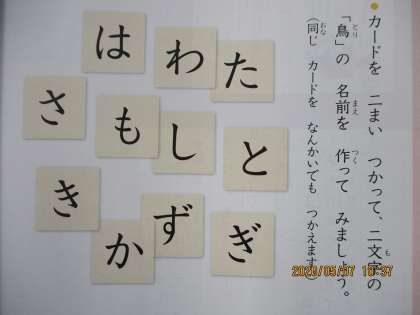 カードを 二まい つかって、二文字の
「鳥」の 名前を 作って みましょう。
(同じ カードを なんかいでも つかえます)
は
わ
た
さ
も
し
と
き
か
ず
ぎ
2020/05/07 16:37